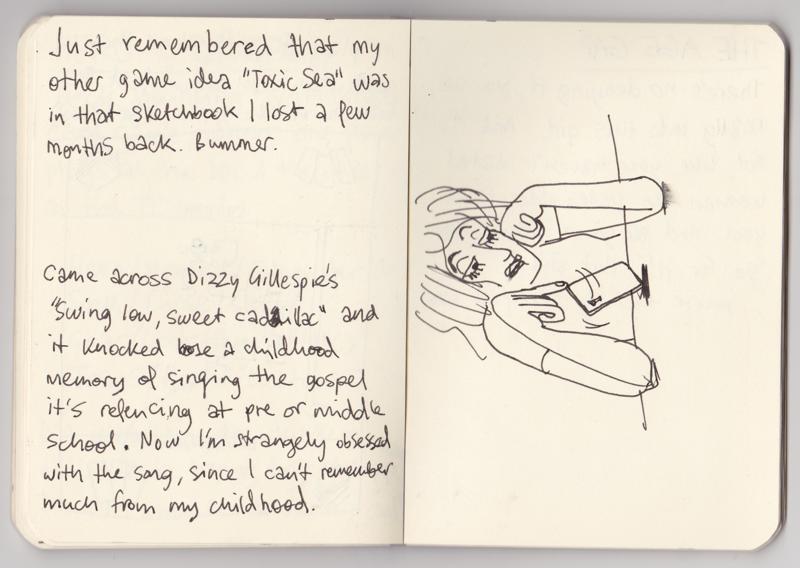 Just remembered that my
other game idea "Toxic Sea" was
in that sketchbook I lost a few
months back. Bummer.
Came across Dizzy Gillespie's
"Swing low, sweet cadillac" and
it knocked lose a childhood
memory of singing the gospel
it's refencing at pre or middle
school. Now I'm strangely obsessed
with the song, since I can't remember
much from my childhood.